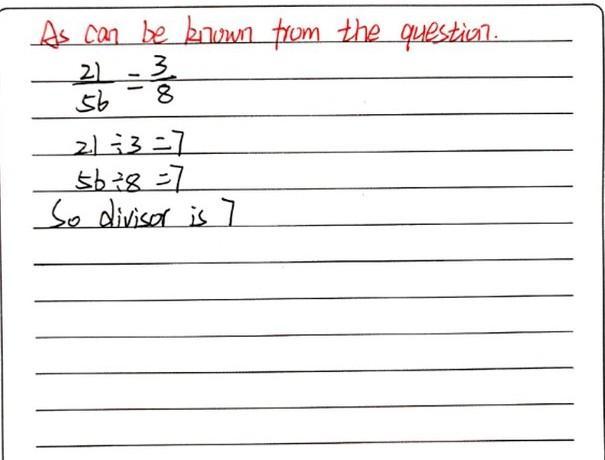 As can be known from the question.
21/56 = 3/8
21÷3=7
56÷8=7
So divisor is 7